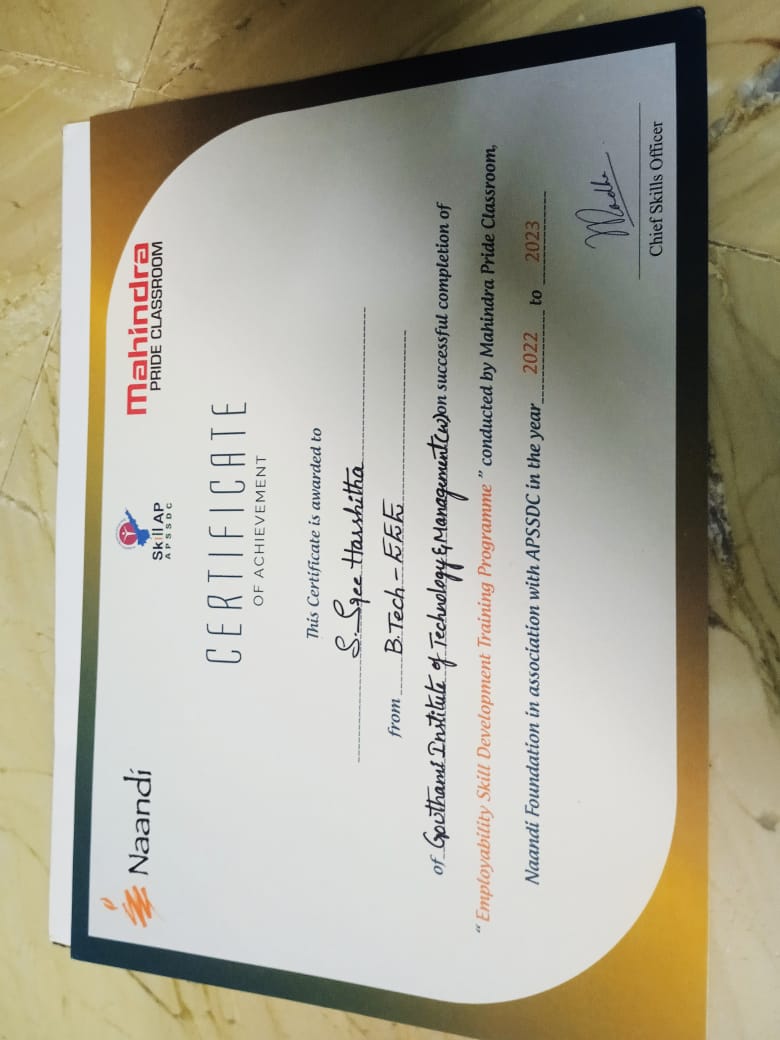 Naandi
Skill AP
APSSDC
Mahindra
PRIDE CLASSROOM
CERTIFICATE
OF ACHIEVEMENT
This Certificate is awarded to
S. Sree Harshitha
from B.Tech - EEE
of Gouthami Institute of Technology & Management (w) on successful completion of
“Employability Skill Development Training Programme” conducted by Mahindra Pride Classroom,
Naandi Foundation in association with APSSDC in the year 2022 to 2023
Chief Skills Officer